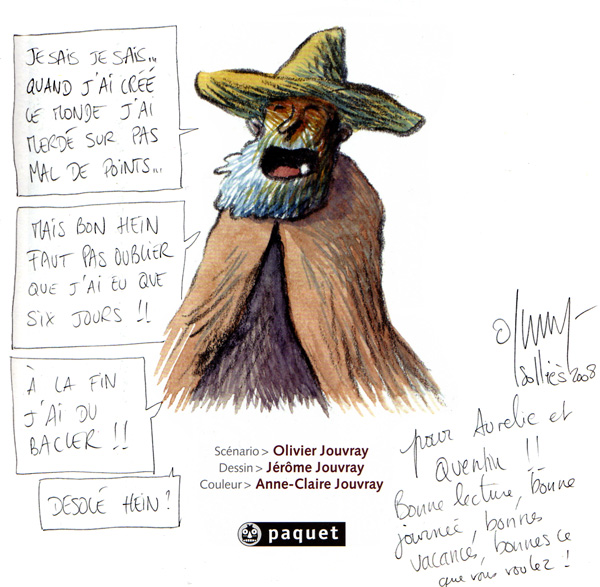 JE SAIS JE SAIS...
QUAND J'AI CRÉÉ
LE MONDE J'AI
MERDÉ SUR PAS
MAL DE POINTS...
MAIS BON HEIN
FAUT PAS OUBLIER
QUE J'AI EU QUE
SIX JOURS !!
À LA FIN
J'AI DU
BACLER !!
DESOLÉ HEIN ?
Scénario > Olivier Jouvray
Dessin > Jérôme Jouvray
Couleur > Anne-Claire Jouvray
paquet
Solliès 2008
pour Aurelie et
Quentin !!
Bonne lecture, bonne
journée, bonnes
vacances, bonnes ce
que vous voulez !